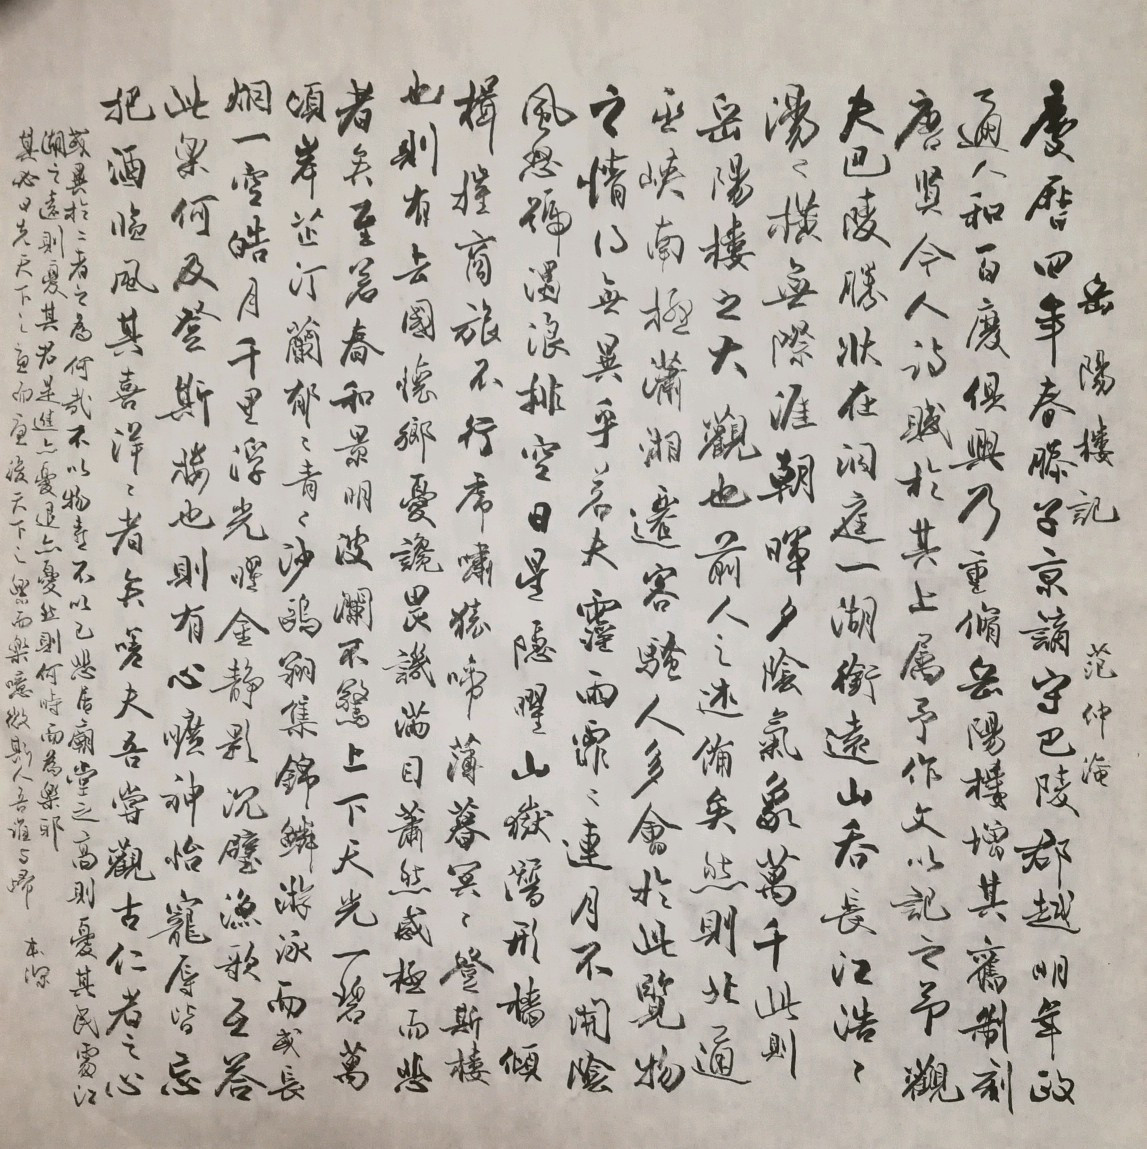 岳陽樓記 范仲淹
慶曆四年春滕子京謫守巴陵郡越明年政
通人和百廢俱興乃重脩岳陽樓增其舊制刻
唐賢今人詩賦於其上属予作文以記之予觀
夫巴陵勝狀在洞庭一湖銜遠山吞長江浩〻
湯〻橫無際涯朝暉夕陰氣象萬千此則
岳陽樓之大觀也前人之述備矣然則北通
巫峽南極瀟湘遷客騷人多會於此覽物
之情得無異乎若夫霪雨霏〻連月不開陰
風怒號濁浪排空日星隱曜山嶽潛形檣傾
楫摧商旅不行虎嘯猿啼薄暮冥〻登斯樓
也則有去國懷鄉憂讒畏譏滿目蕭然感極而悲
者矣至若春和景明波瀾不驚上下天光一碧萬
頃岸芷汀蘭郁〻青〻沙鷗翔集錦鱗游泳而或長
烟一空皓月千里浮光曜金靜影沉璧漁歌互答
此樂何及登斯樓也則有心曠神怡寵辱皆忘
把酒臨風其喜洋〻者矣嗟夫吾嘗觀古仁者之心
或異於二者之為何哉不以物喜不以己悲居廟堂之高則憂其民處江
湖之遠則憂其君是進亦憂退亦憂然則何時而為樂耶
其必曰先天下之憂而憂後天下之樂而樂噫微斯人吾誰与歸 本深